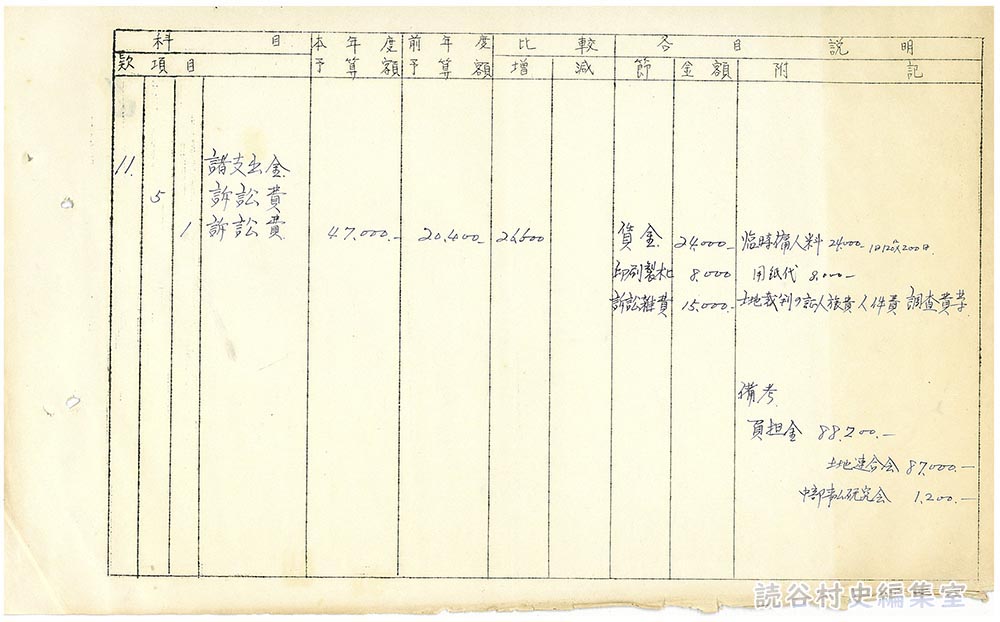 科目 本年度 前年度 比較 各目説明
款 項 目 予算額 予算額 増 減 節 金額 附記
11 諸支出金
5 訴訟費
1 訴訟費 47,000.- 20,400- 26,600 賃金 24,000- 臨時傭人料 24,000-
印刷製本 8,000 用紙代 8,000-
訴訟雑費 15,000.- 土地裁判の証人旅費人件費 調査費等
備考
負担金 88,200.-
土地連合会 87,000.-
中部事ム研究会 1,200.-
読谷村史編集室